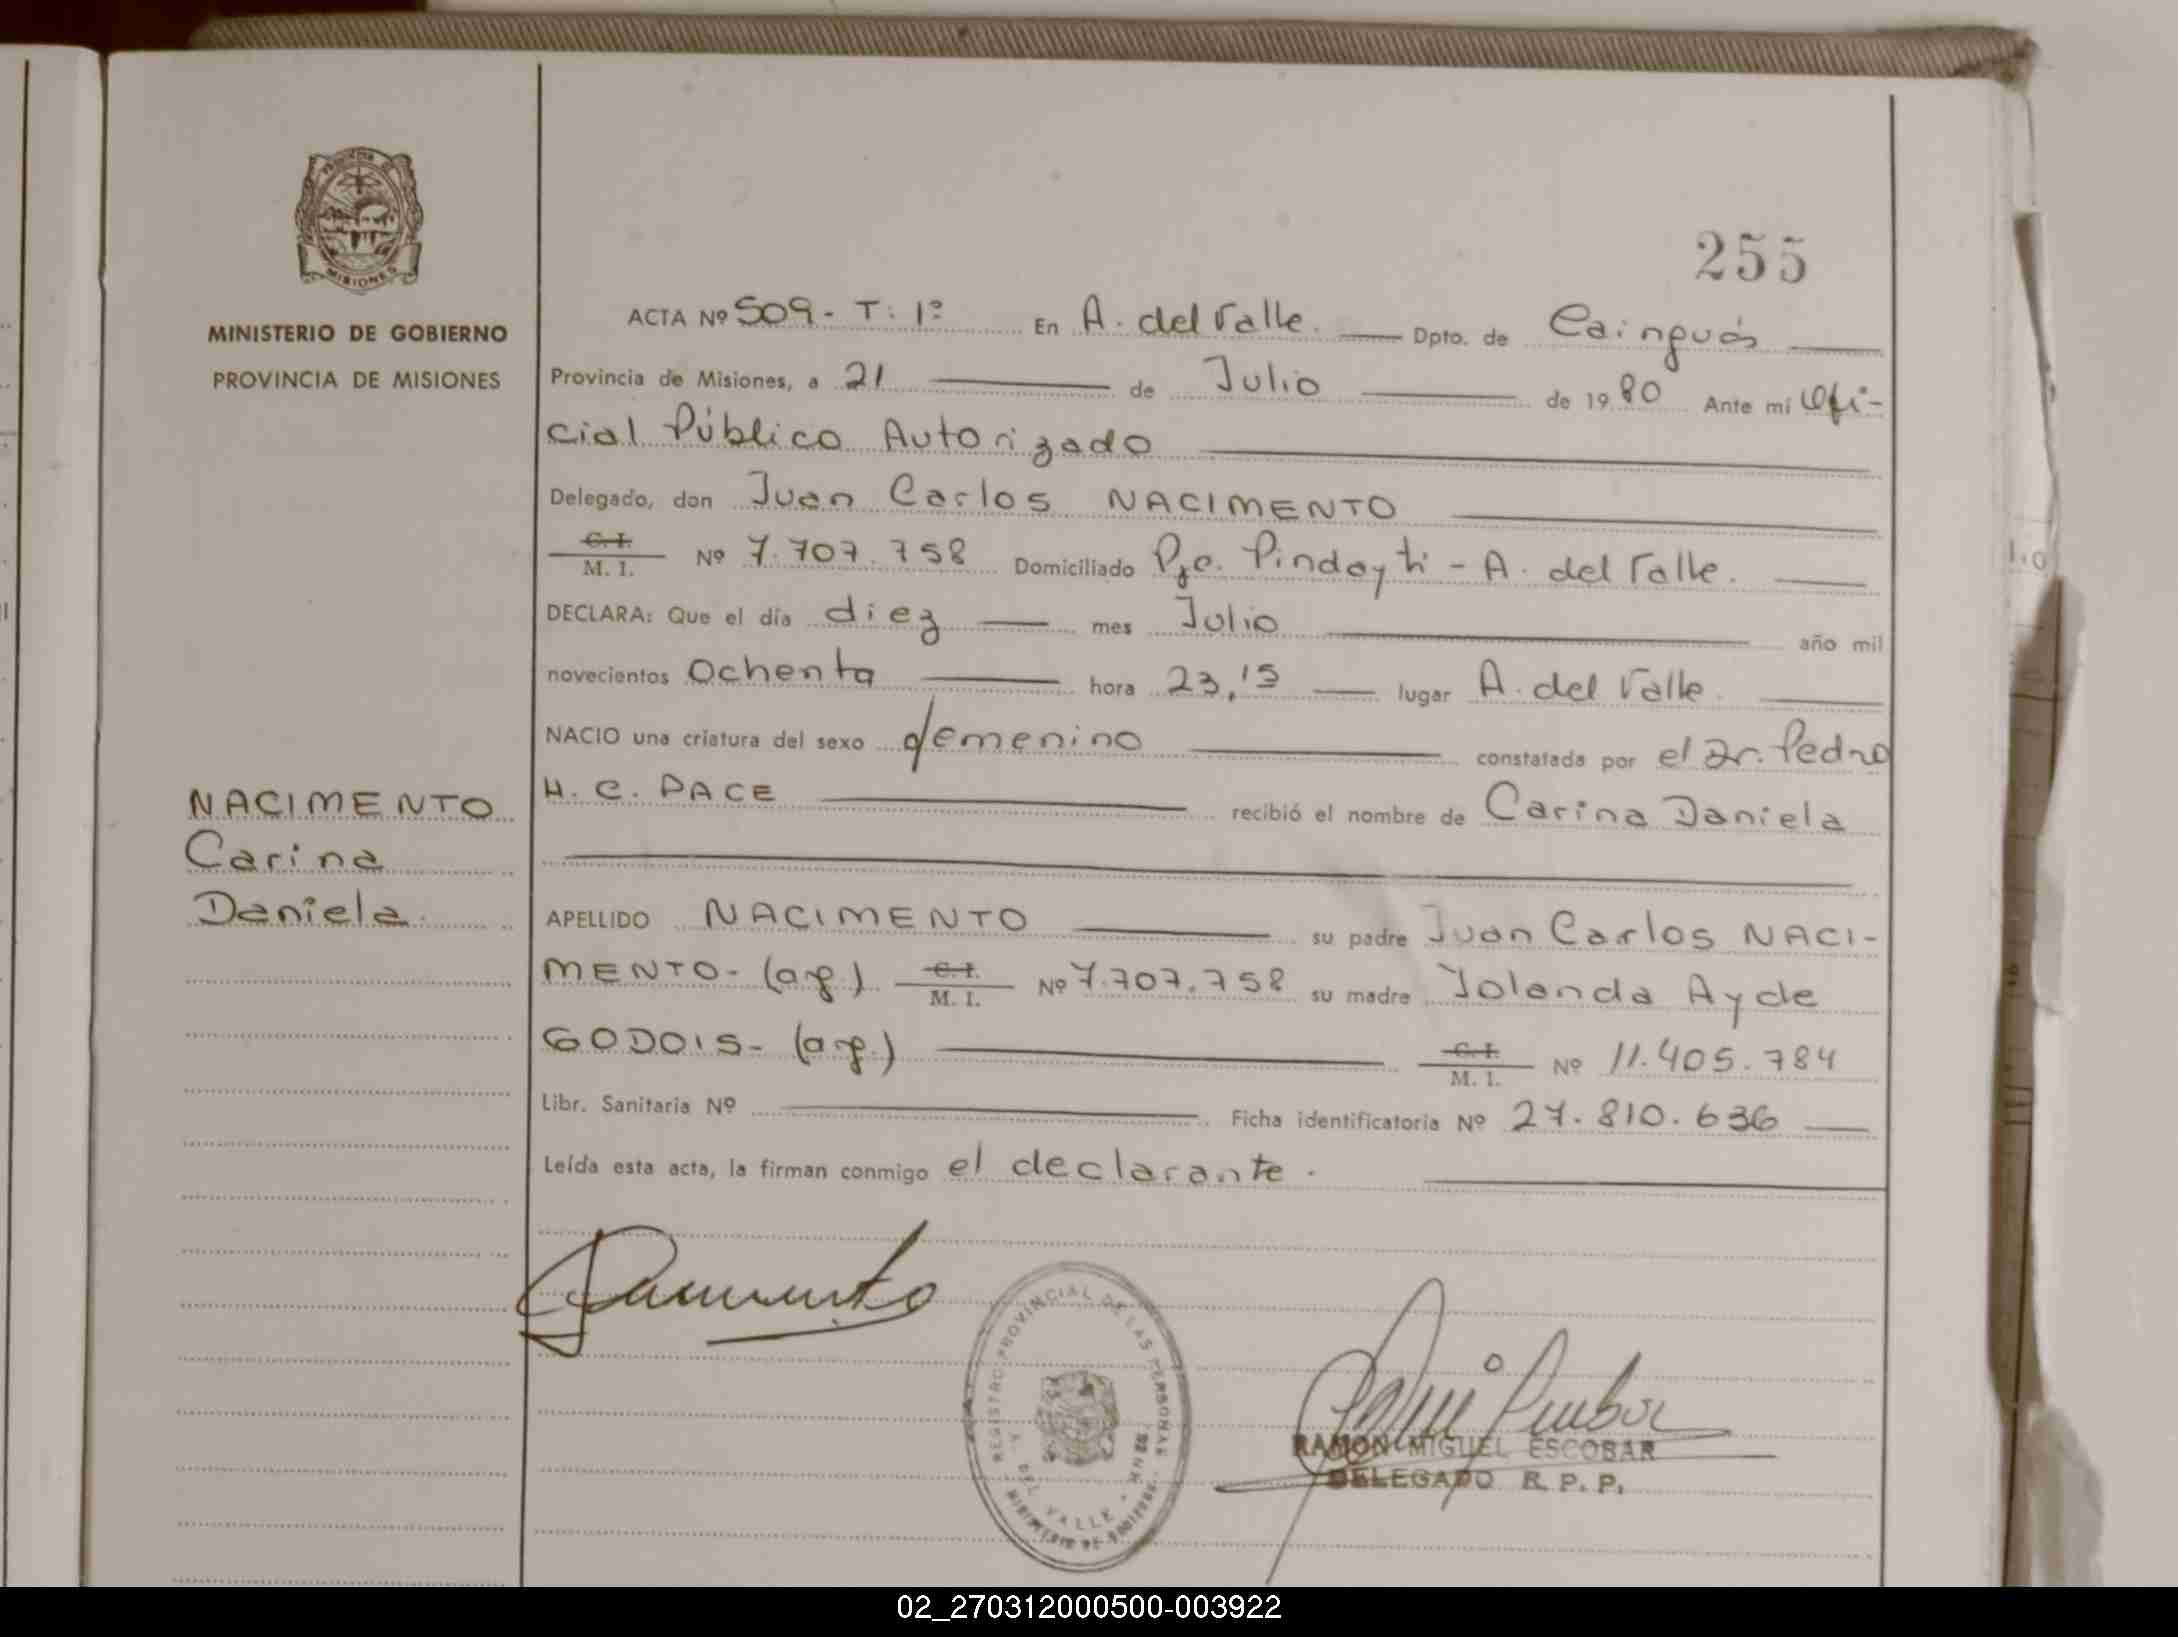 PROVINCIA DE
MISIONES
MINISTERIO DE GOBIERNO
PROVINCIA DE MISIONES
NACIMENTO
Carina
Daniela.
255
ACTA Nº 509- T: 1º En A. del Valle. Dpto. de Cainguás
Provincia de Misiones, a 21 de Julio de 1980 Ante mi Ofi-
cial Público Autorizado
Delegado, don Juan Carlos NACIMENTO
C. I.
M. I. Nº 7.707.758 Domiciliado Pje. Pindayti - A. del Valle.
DECLARA: Que el día diez mes Julio año mil
novecientos ochenta hora 23,15 lugar A. del Valle.
NACIO una criatura del sexo femenino constatada por el Dr. Pedro
H. C. PACE recibió el nombre de Carina Daniela
APELLIDO NACIMENTO su padre Juan Carlos NACI-
MENTO- (arg.) C. I. M. I. Nº 7.707.758 su madre Jolanda Ayde
GODOIS- (arg.) C. I. M. I. Nº 11.405.784
Libr. Sanitaria Nº Ficha identificatoria Nº 27.810.636
Leída esta acta, la firman conmigo el declarante.
REGISTRO PROVINCIAL DE LAS PERSONAS
A. DEL VALLE
MINISTERIO DE GOBIERNO
RAMON MIGUEL ESCOBAR
DELEGADO R. P. P.
02_270312000500-003922